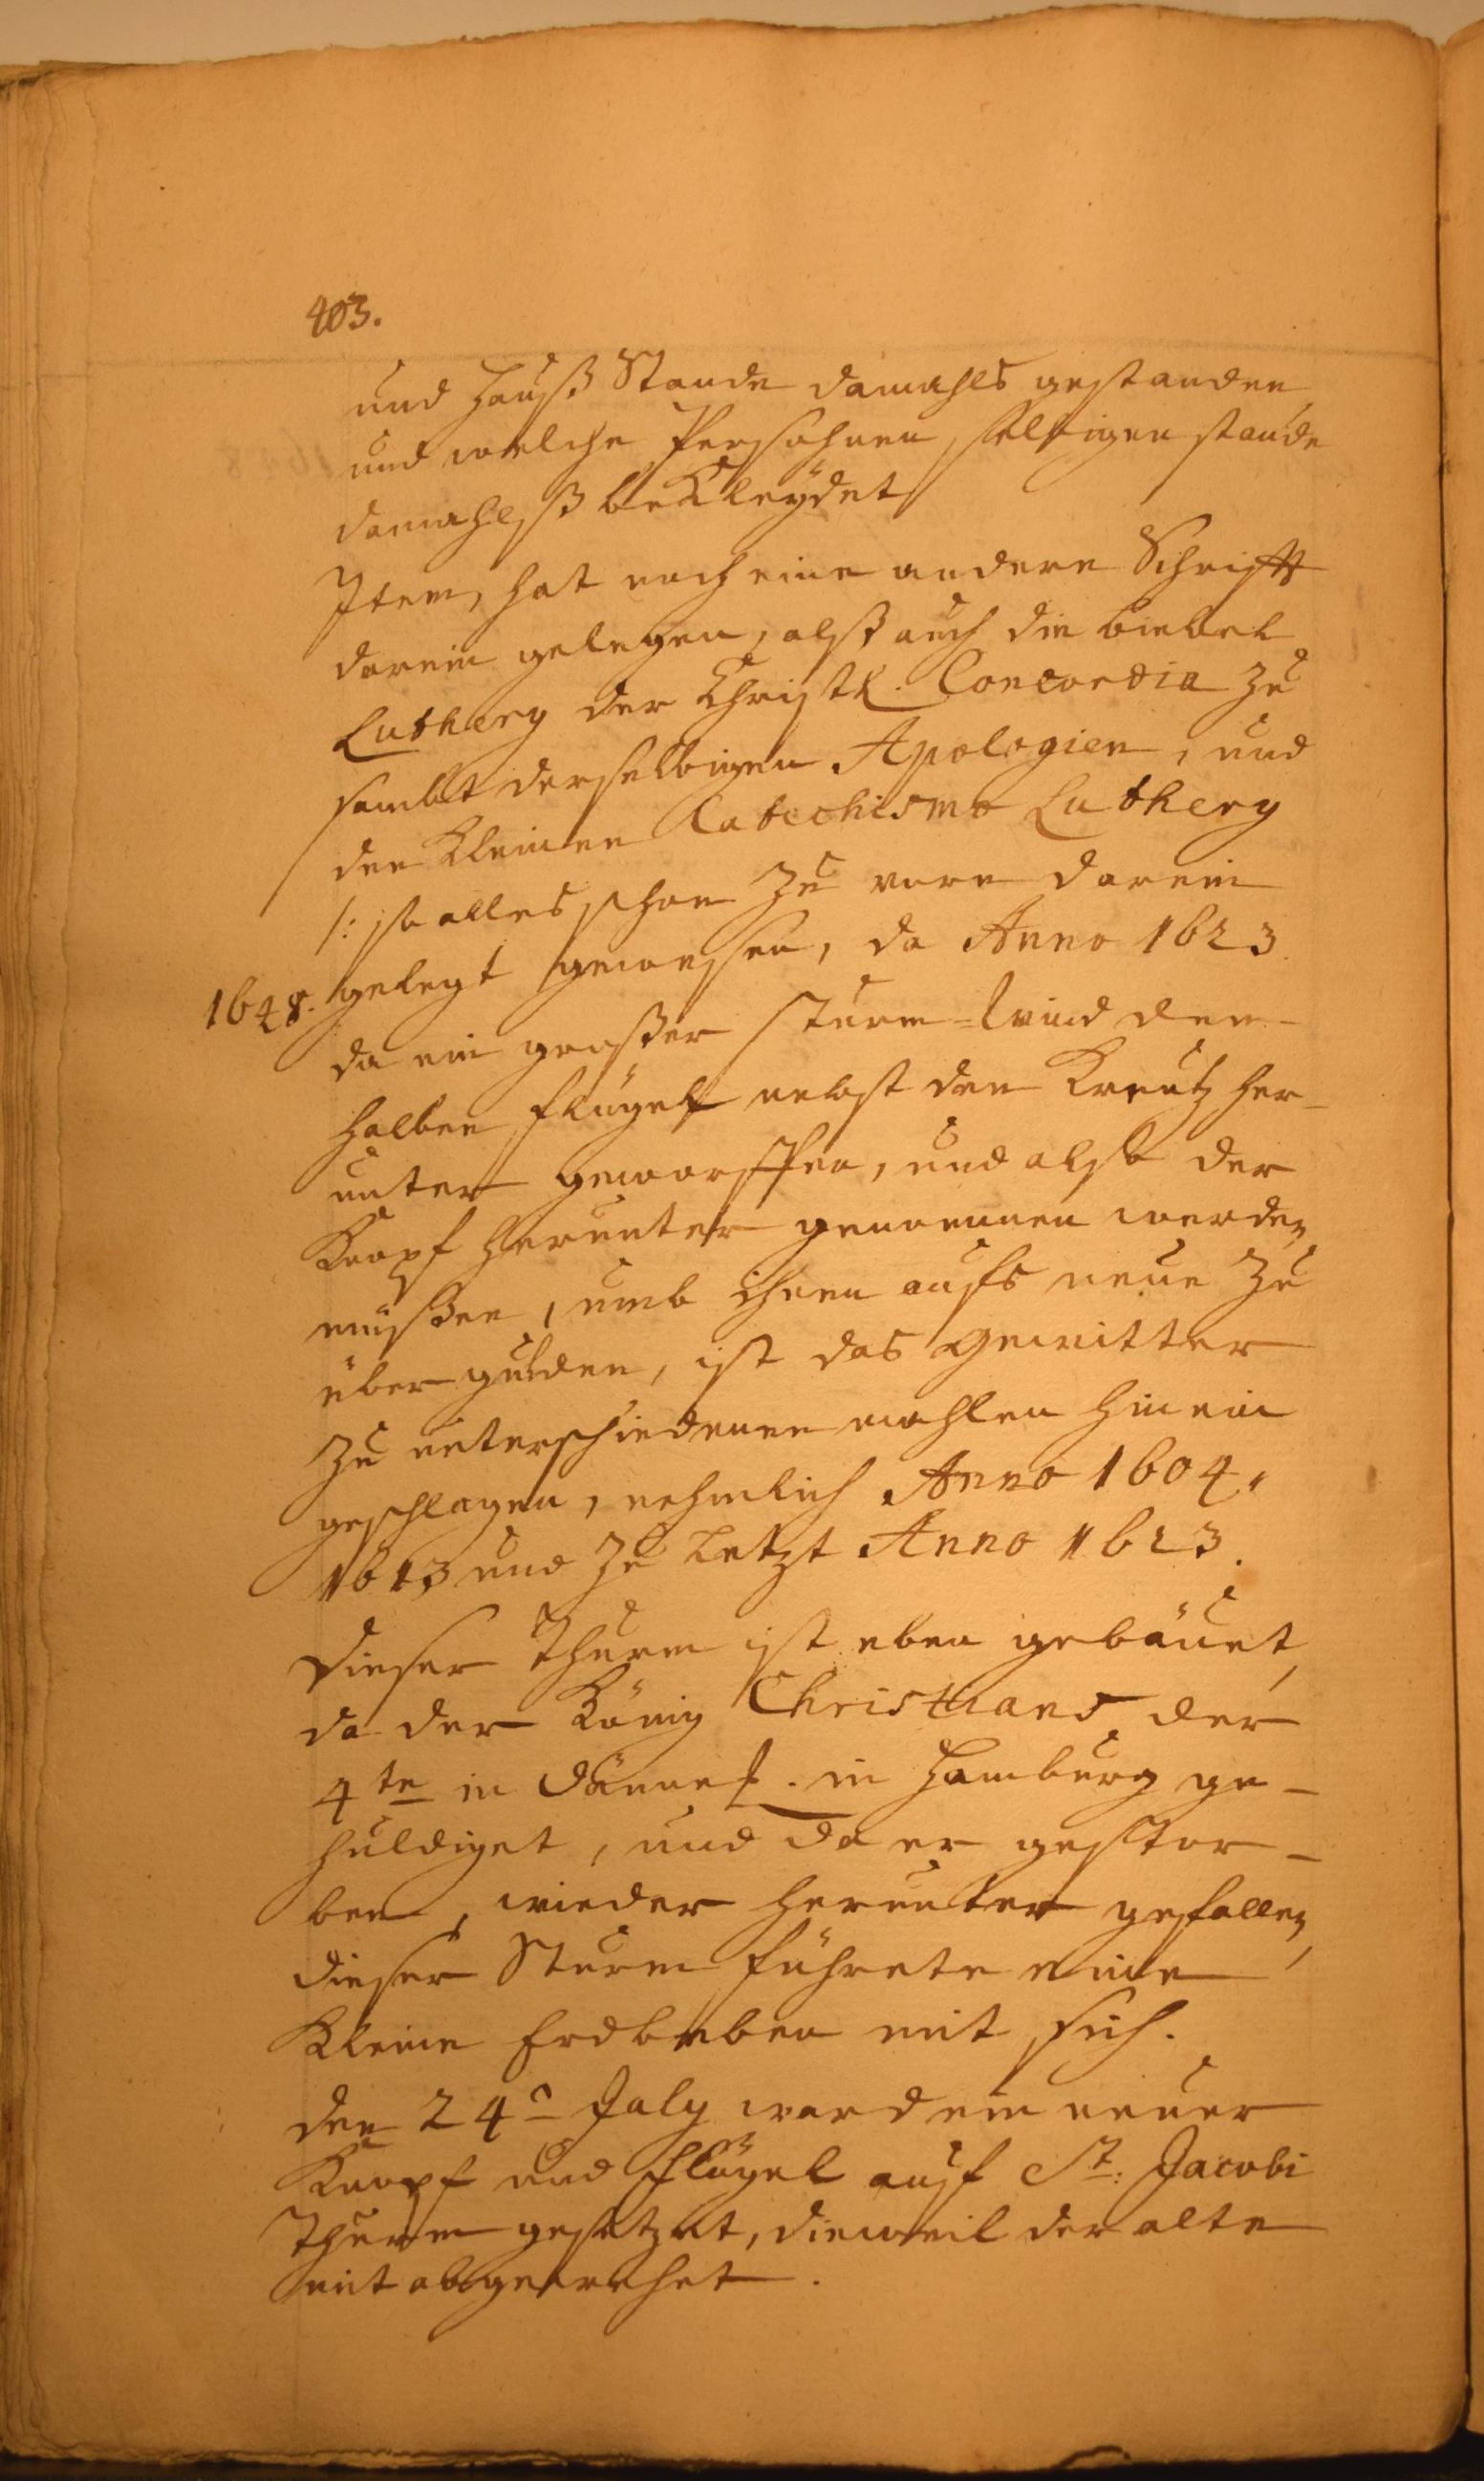 403.
und Hauß Stande damahls gestanden
und welche Persohnen selbigen stande
damahlß bekleÿdet
Item, hat noch eine andere Schrifft
darein gelegen, alß auch die biebel
Luthery der Christl. Concordia zu
sambt derselbigen Apologien, und
den Kleinen Catechismo Luthery
/: so alles schon zu vorn darein
gelegt gewessen, da Anno 1623.
1648.
da ein großer Sturm=Wind den
halben flügel nebst den Kreutz her-
unter geworffen, und alß der
Knopf herunter genommen werden
müßen, umb ihnen aufs neue zu
über gulden, ist das gewitter
zu unterschiedenen mahlen hinein
geschlagen, nehmlich Anno 1604,
1613 und zu Letzt Anno 1623.
Dieser Thurm ist eben gebäuet,
da der König Christians der
4te in Dännem. in Hamburg ge-
huldiget, und da er gestor-
ben, wieder herunter gefallen,
dieser Sturm führete eine
Kleine Erdbeben mit sich.
den 24n July ward ein neuer
Knopf und flügel auf St: Jacobi
Thurm gesetzet, dieweil der alte
mit abgewehet.